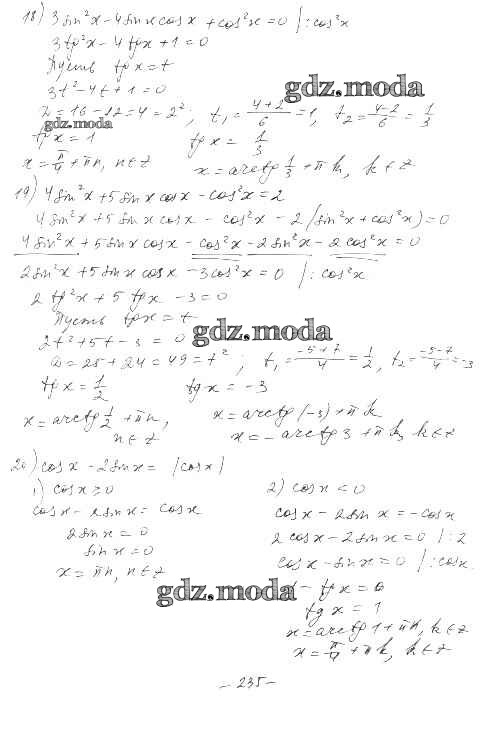 18) 3sin²x - 4sinxcosx + cos²x = 0 |: cos²x
3tg²x - 4tgx + 1 = 0
Пусть tgx = t
3t² - 4t + 1 = 0
gdz.moda
D = 16 - 12 = 4 = 2²; t₁ = (4+2)/6 = 1, t₂ = (4-2)/6 = 1/3
gdz.moda
tgx = 1 tgx = 1/3
x = π/4 + πn, n∈z x = arctg 1/3 + πk, k∈z
19) 4sin²x + 5sinxcosx - cos²x = 2
4sin²x + 5sinxcosx - cos²x - 2(sin²x + cos²x) = 0
4sin²x + 5sinxcosx - cos²x - 2sin²x - 2cos²x = 0
2sin²x + 5sinxcosx - 3cos²x = 0 |: cos²x
2tg²x + 5tgx - 3 = 0
Пусть tgx = t
gdz.moda
2t² + 5t - 3 = 0
D = 25 + 24 = 49 = 7²; t₁ = (-5+7)/4 = 1/2, t₂ = (-5-7)/4 = -3
tgx = 1/2 tgx = -3
x = arctg 1/2 + πn, x = arctg(-3) + πk
n∈z x = -arctg3 + πk, k∈z
20) cosx - 2sinx = |cosx|
1) cosx ≥ 0 2) cosx < 0
cosx - 2sinx = cosx cosx - 2sinx = -cosx
2sinx = 0 2cosx - 2sinx = 0 |: 2
sinx = 0 cosx - sinx = 0 |: cosx
x = πn, n∈z 1 - tgx = 0
gdz.moda
tgx = 1
x = arctg1 + πk, k∈z
x = π/4 + πk, k∈z
- 235 -